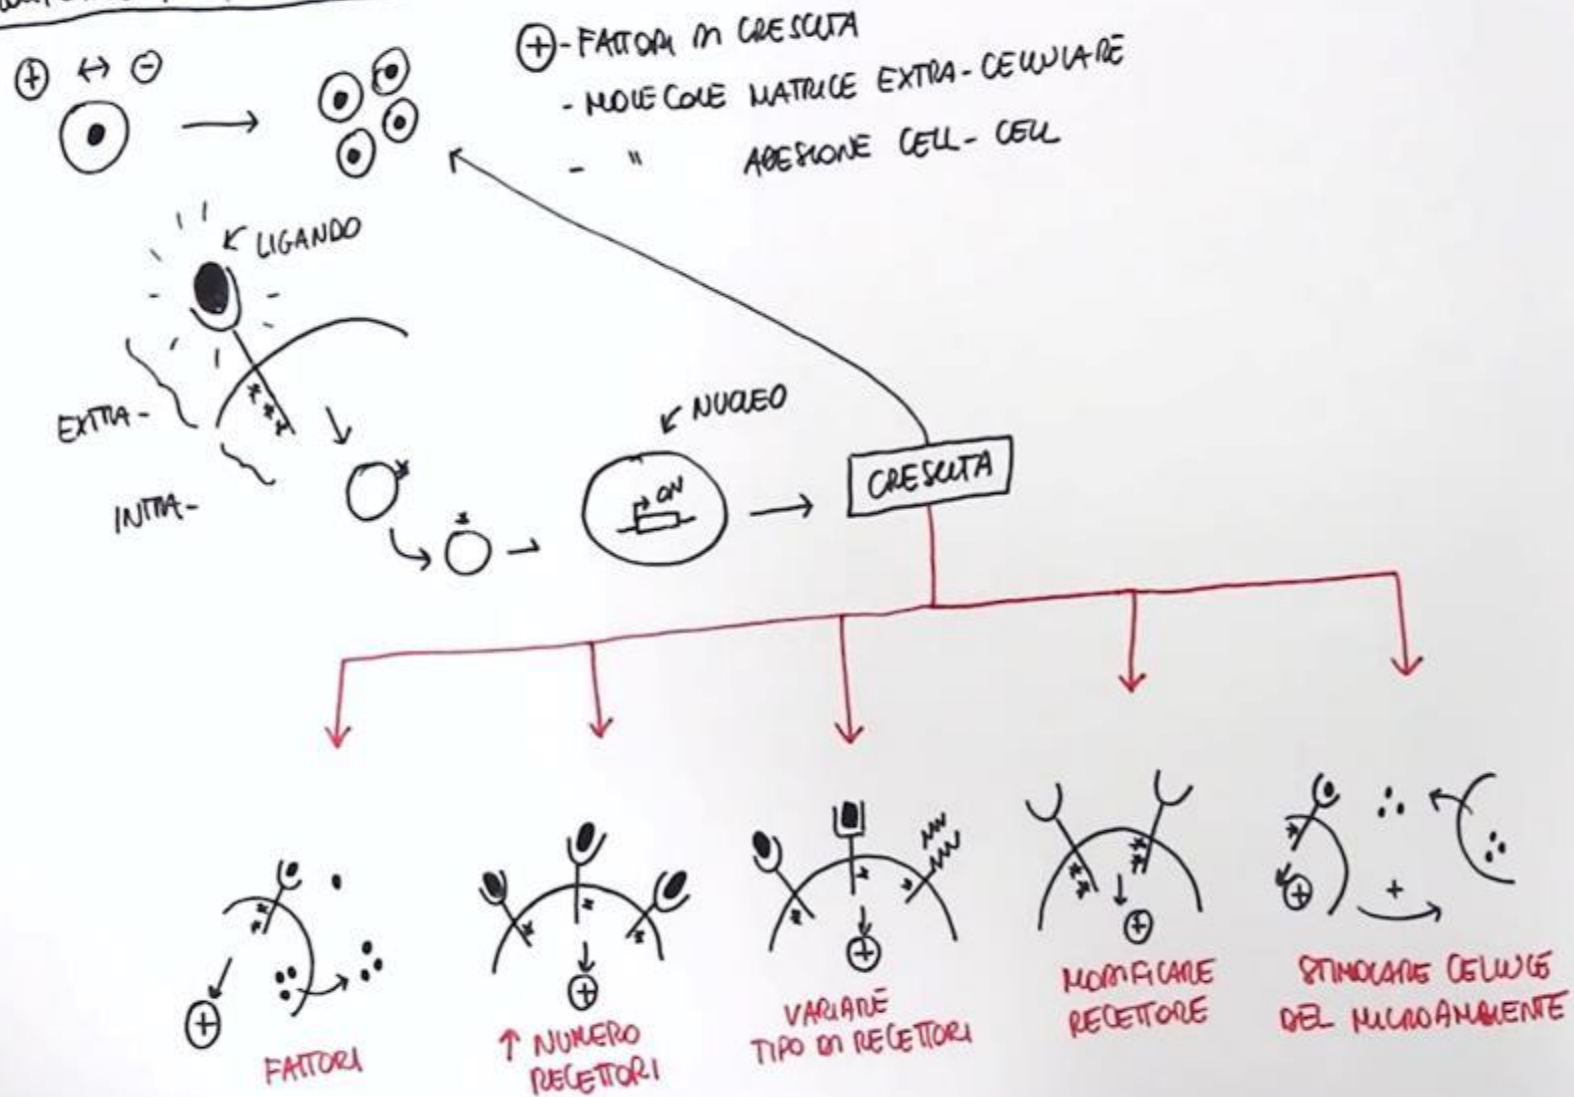 ⊕ ↔ ⊖
⊕ - FATTORI DI CRESCITA
- MOLECOLE MATRICE EXTRA-CELLULARE
- " ADESIONE CELL-CELL
LIGANDO
EXTRA-
INTRA-
NUCLEO
ON
CRESCITA
⊕
FATTORI
⊕
↑ NUMERO
RECETTORI
⊕
VARIARE
TIPO DI RECETTORI
⊕
MODIFICARE
RECETTORE
⊕
+
STIMOLARE CELLULE
DEL MICROAMBIENTE